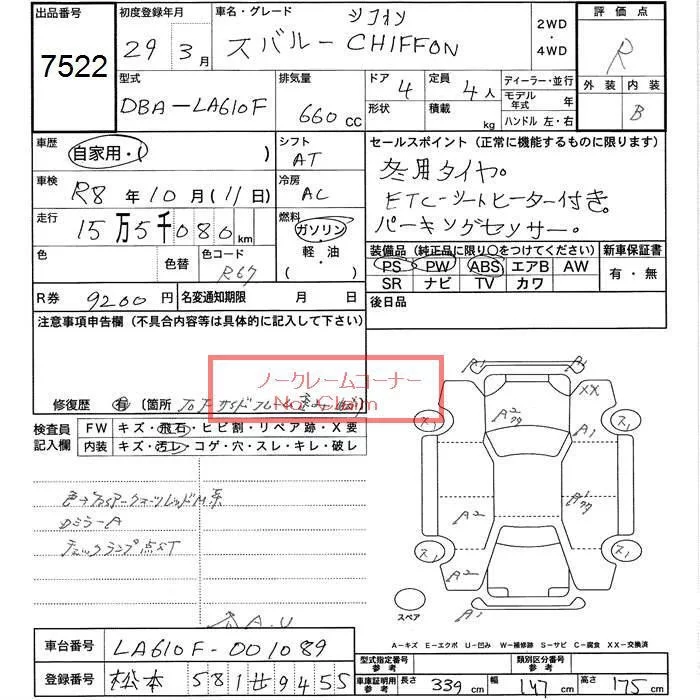 出品番号
7522
初度登録年月
29 3月
車名・グレード
シフォン
スバルーCHIFFON
2WD
・
4WD
評価点
R
型式
DBA-LA610F
排気量
660cc
ドア 4
形状
定員 4人
積載 kg
ディーラー・並行
モデル年式 年
ハンドル 左・右
外装 内装
B
車歴
自家用・( )
シフト
AT
セールスポイント (正常に機能するものに限ります)
冬用タイヤ。
ETC-シートヒーター付き。
パーキングセンサー。
車検
R8年10月(11日)
冷房
AC
走行
15万5千080km
燃料
ガソリン・
軽・油
( )
色
色替
色コード
R67
装備品 (純正品に限り○をつけてください)
PS PW ABS エアB AW
SR ナビ TV カワ
新車保証書
有・無
R券 9200円
名変通知期限 月 日
後日品
注意事項申告欄 (不具合内容等は具体的に記入して下さい)
ノークレームコーナー
No Claim
修復歴 有 〔箇所
検査員
記入欄
FW キズ・飛石・ヒビ割・リペア跡・X要
内装 キズ・汚レ・コゲ・穴・スレ・キレ・破レ
DミラーA
チェックランプ点灯
A.U
A1
A1
XX
A2
スノ
スノ
A1
A2
A1
スノ
スノ
A2
A1
スペア
A-キズ E-エクボ U-凹み W-補修跡 S-サビ C-腐食 XX-交換済
車台番号
LA610F-001089
登録番号
松本 581 せ 9455
型式指定番号
参考
類別区分番号
参考
車庫証明用
参考
長さ 339cm
幅 147cm
高さ 175cm